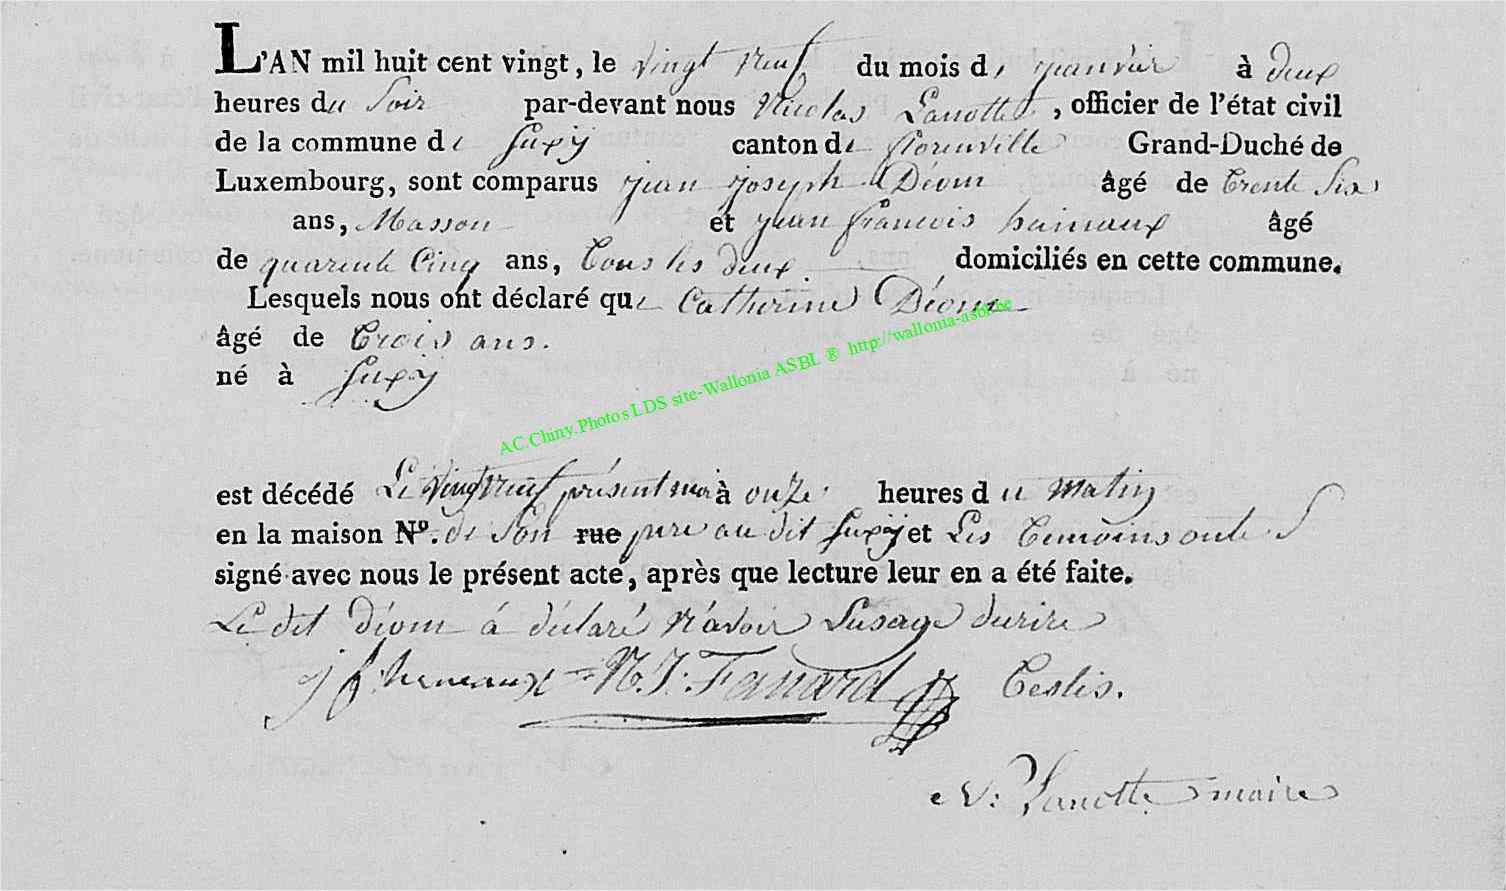 L'AN mil huit cent vingt, le vingt neuf du mois de janvier à deux
heures du Soir par-devant nous Nicolas Lanotte, officier de l'état civil
de la commune de Suxÿ canton de florenville Grand-Duché de
Luxembourg, sont comparus jean joseph Déom âgé de trente Six
ans, Masson et jean francois hainaux âgé
de quarente Cinq ans, tous les deux domiciliés en cette commune.
Lesquels nous ont déclaré que Catherine Déom
âgé de trois ans.
né à Suxÿ
AC.Chiny.Photos LDS site-Wallonia ASBL ® http://wallonia-asbl.be
est décédé Le vingt neuf présent mois à onze heures du Matin
en la maison N°. de Son rue pere au dit Suxÿ et Les temoins onts
signé avec nous le présent acte, après que lecture leur en a été faite.
Le dit déom à déclaré n'avoir Lusage decrire
j f herneaux N. J. Fanard Testis.
N: Lanotte maire